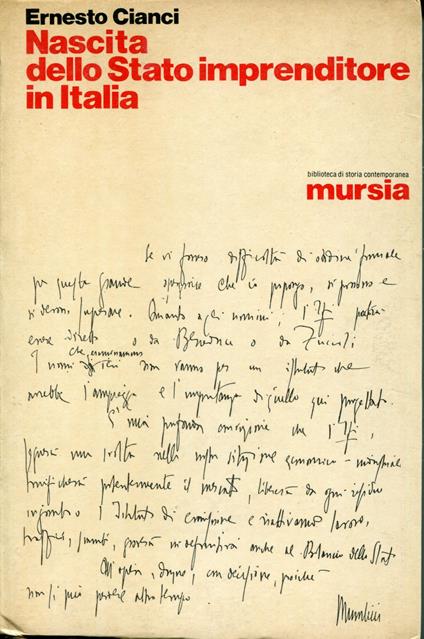 Ernesto Cianci
Nascita
dello Stato imprenditore
in Italia
biblioteca di storia contemporanea
mursia
Se vi fossero difficoltà di ordine formale
per questa grande operazione che io propongo, si possono e
si devono superare. Quanto agli uomini, l'Ifi potrà
essere diretto o da Beneduce o da
I nomi che non vanno per un istituto che
avrebbe l'ampiezza e l'importanza di quello qui progettato.
mia profonda convinzione che l'Ifi,
una svolta nella nostra situazione economico - industriale
potentemente il mercato, libererà da ogni
l'Istituto di emissione e riattivando lavoro,
traffici, scambi, gioverà in definitiva anche al Bilancio dello Stato
All'opera, dunque, con decisione, poiché
non si può perdere altro tempo.
Mussolini